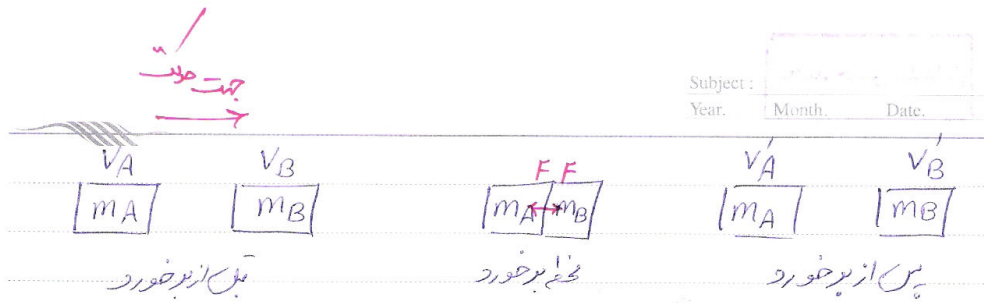 جهت مثبت
Subject :
Year. Month. Date.
V_A V_B V'_A V'_B
F F
m_A m_B m_A m_B m_A m_B
قبل از برخورد لحظه برخورد پس از برخورد